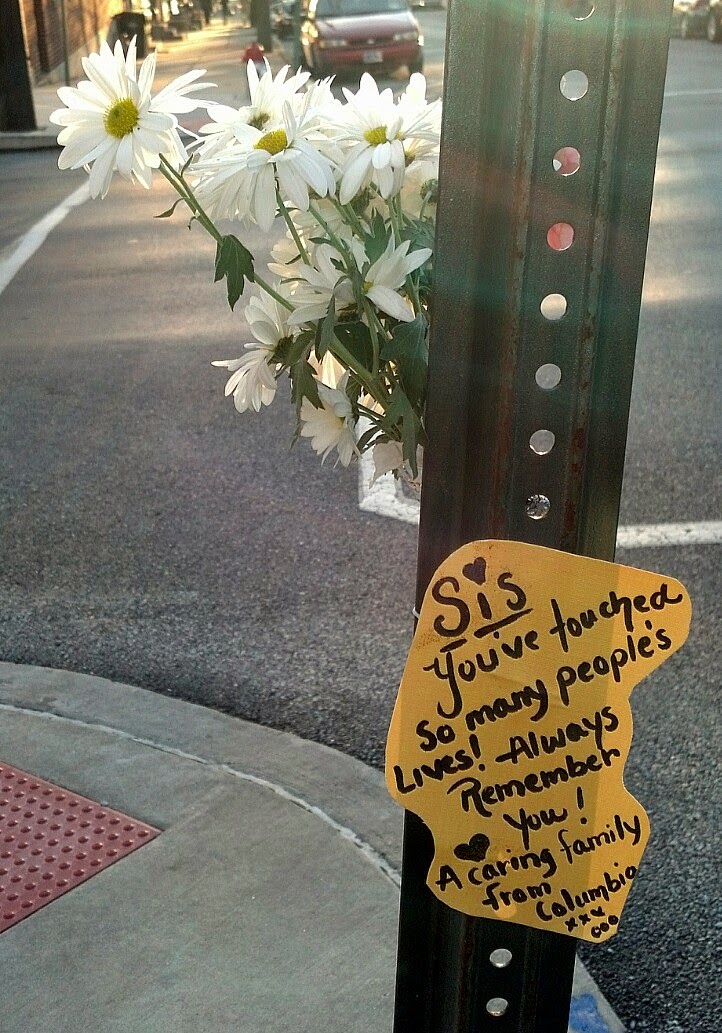 Sis
You've touched
so many people's
Lives! Always
Remember
You!
A caring family
from
Columbia
xxx
ooo